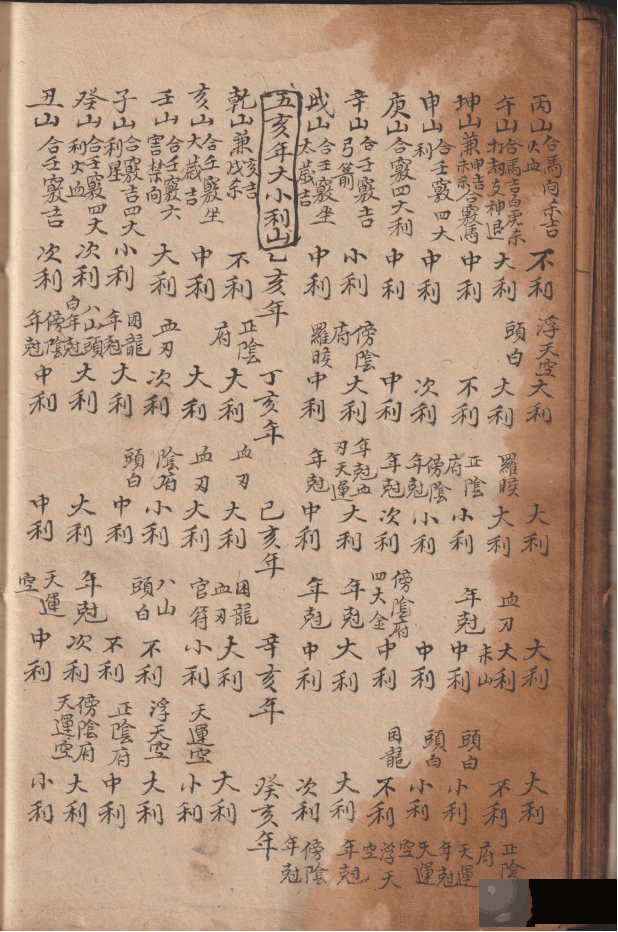 丙山 合馬向禾吉 火血 不利 浮天空 大利 大利 大利 大利
午山 合馬吉白虎禾 打劫支神退 大利 頭白 大利 羅睺 大利 血刃 大利 不利 正陰府
坤山 兼申吉合竅馬 中利 不利 正陰府 小利 年尅 中利 頭白 小利 天運
申山 合壬竅四大利 中利 次利 傍陰年尅 小利 中利 頭白 小利 年尅天運空
庚山 合竅四大利 中利 中利 年尅 次利 傍陰府四大金 中利 困龍 不利 浮天空
辛山 合壬竅吉 弓箭 小利 傍陰府 大利 年尅血刃天運 大利 年尅 大利 大利 年尅
戌山 合壬竅坐大歲吉 中利 羅睺 中利 年尅 中利 年尅 中利 次利 傍陰年尅
五亥年大小利山 乙亥年 丁亥年 己亥年 辛亥年 癸亥年
乾山 兼亥吉 戊禾 不利 正陰府 大利 血刃 大利 困龍血刃 大利 大利
亥山 合壬竅坐大歲吉 中利 大利 血刃 大利 官符 小利 天運空 小利
壬山 合壬竅六害禁向 大利 血刃 次利 陰府 小利 八山頭白 不利 浮天空 大利
子山 合竅吉四大利星 小利 困龍年尅 大利 頭白 中利 不利 正陰府 中利
癸山 合壬竅四大利火血 次利 八山頭白年尅 大利 大利 年尅 次利 傍陰府天運空 大利
丑山 合壬竅吉 次利 傍陰年尅 中利 中利 天運空 中利 小利